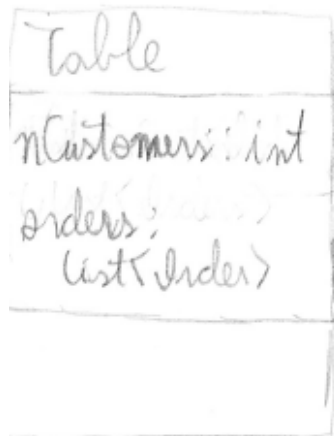 Table
nCustomers: int
orders:
List<Order>